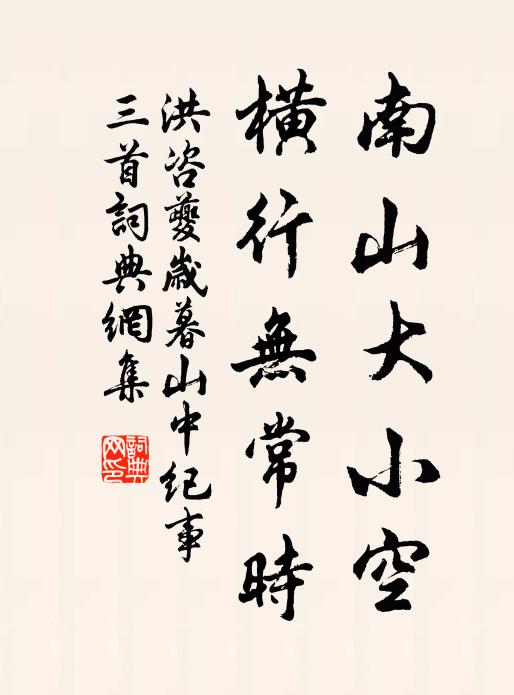 南山大小空
橫行無常時
洪咨夔歲暮山中纪事
三首詞典網集
詞典網印